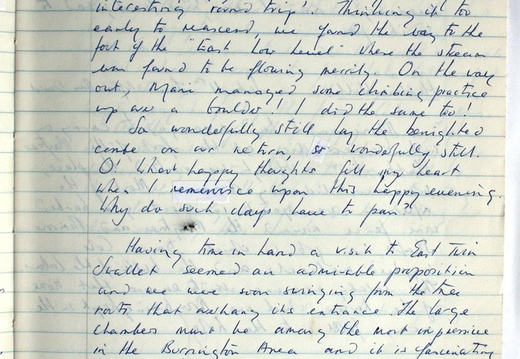 interesting 'round trip'. Thinking it too
early to reascend, we found the way to the
foot of the "East Low Level" where the stream
was found to be flowing merrily. On the way
out, Marie managed some climbing practice
up on a boulder! I did the same too!
So wonderfully still lay the benighted
combe on our return, so wonderfully still.
O! What happy thoughts fill my heart
when I reminisce upon this happy evening.
Why do such days have to pass?
Having time in hand a visit to East Twin
Swallet seemed an admirable proposition
and we were soon swinging from the tree
roots that overhang its entrance. The large
chamber must be among the most impressive
in the Burrington Area and it is fascinating